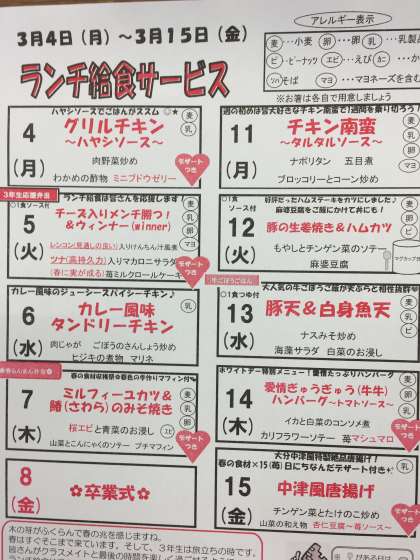 3月4日（月）～3月15日（金）
ランチ給食サービス
アレルギー表示
麦…小麦 卵…卵 乳…乳製品
ピ…ピーナッツ エビ…えび カニ…か
ソバ…そば マヨ…マヨネーズを含む
※お箸は各自で用意しましょう
ハヤシソースでごはんがススム◎★
4
(月)
グリルチキン
～ハヤシソース～
肉野菜炒め
わかめの酢物 ミニブドウゼリー
デザートつき
麦
乳
週の初めは皆大好きなチキン南蛮で1週間を乗り切ろう
11
(月)
チキン南蛮
～タルタルソース～
ナポリタン 五目煮
ブロッコリーとコーン炒め
麦
卵
乳
マヨ
3年生応援弁当
ランチ給食は皆さんを応援します
○1食ソース付
5
(火)
チーズ入りメンチ勝つ！
&ウィンナー(winner)
レンコン(見通しの良い)入りけんちん汁風煮
ツナ(高持久力)入りマカロニサラダ
(春に実が成る)苺ミルクロールケーキ
デザートつき
麦
卵
乳
マヨ
○1食
ソース付
好評だったハムステーキをカツにしました♪
麻婆豆腐をご飯にかけて丼にも！
12
(火)
豚の生姜焼き&ハムカツ
もやしとチンゲン菜のソテー
麻婆豆腐
麦
卵
乳
マグカップ
カレー風味のジューシースパイシーチキン♪
6
(水)
カレー風味
タンドリーチキン
肉じゃが ごぼうのさんしょう炒め
ヒジキの煮物 マリネ
乳
牛ごぼうごはん
○1食つゆ付
大人気の牛ごぼうご飯が天ぷらと相性抜群
13
(水)
豚天&白身魚天
ナスみそ炒め
海藻サラダ 白菜のお浸し
麦
卵
乳
春の食材収穫祭☆春色の手作りマフィン付
7
(木)
ミルフィーユカツ&
鰆(さわら)のみそ焼き
桜エビと青菜のお浸し
山菜とこんにゃくのソテー プチマフィン
デザートつき
麦
卵
乳
エビ
ホワイトデー特別メニュー！愛情たっぷりハンバーグ
14
(木)
愛情ぎゅうぎゅう(牛牛)
ハンバーグ～トマトソース～
イカと白菜のコンソメ煮
カリフラワーソテー 苺マシュマロ
デザートつき
麦
卵
乳
8
(金)
✿卒業式✿
大分中津風唐揚げ
春の食材×15(苺)日にちなんだデザート付き
15
(金)
中津風唐揚げ
チンゲン菜とたけのこ炒め
山菜の和え物 杏仁豆腐～苺ソース～
デザートつき
麦
卵
乳
木の芽がふくらんで春の兆を感じますね。
春はすぐそこまで来ています。そして、3年生は旅立ちの時です。
皆さんがクラスメイトと最後の時間を楽しく過ごせるように
がある日は